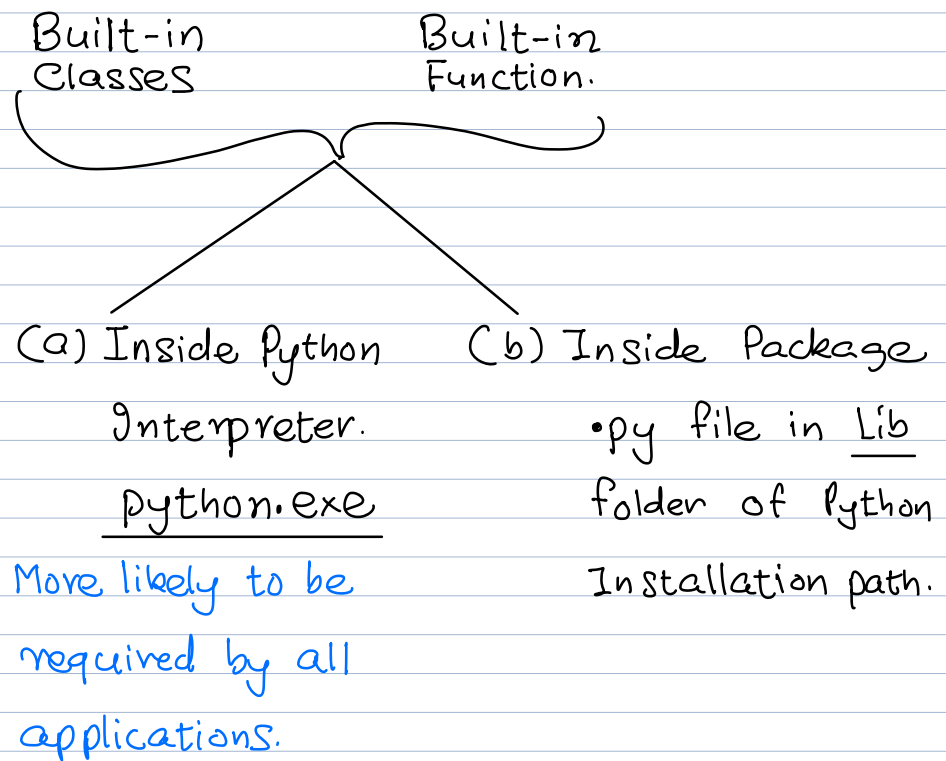 Built-in
Classes
Built-in
Function.
(a) Inside Python
Interpreter.
python.exe
More likely to be
required by all
applications.
(b) Inside Package
.py file in Lib
folder of Python
Installation path.